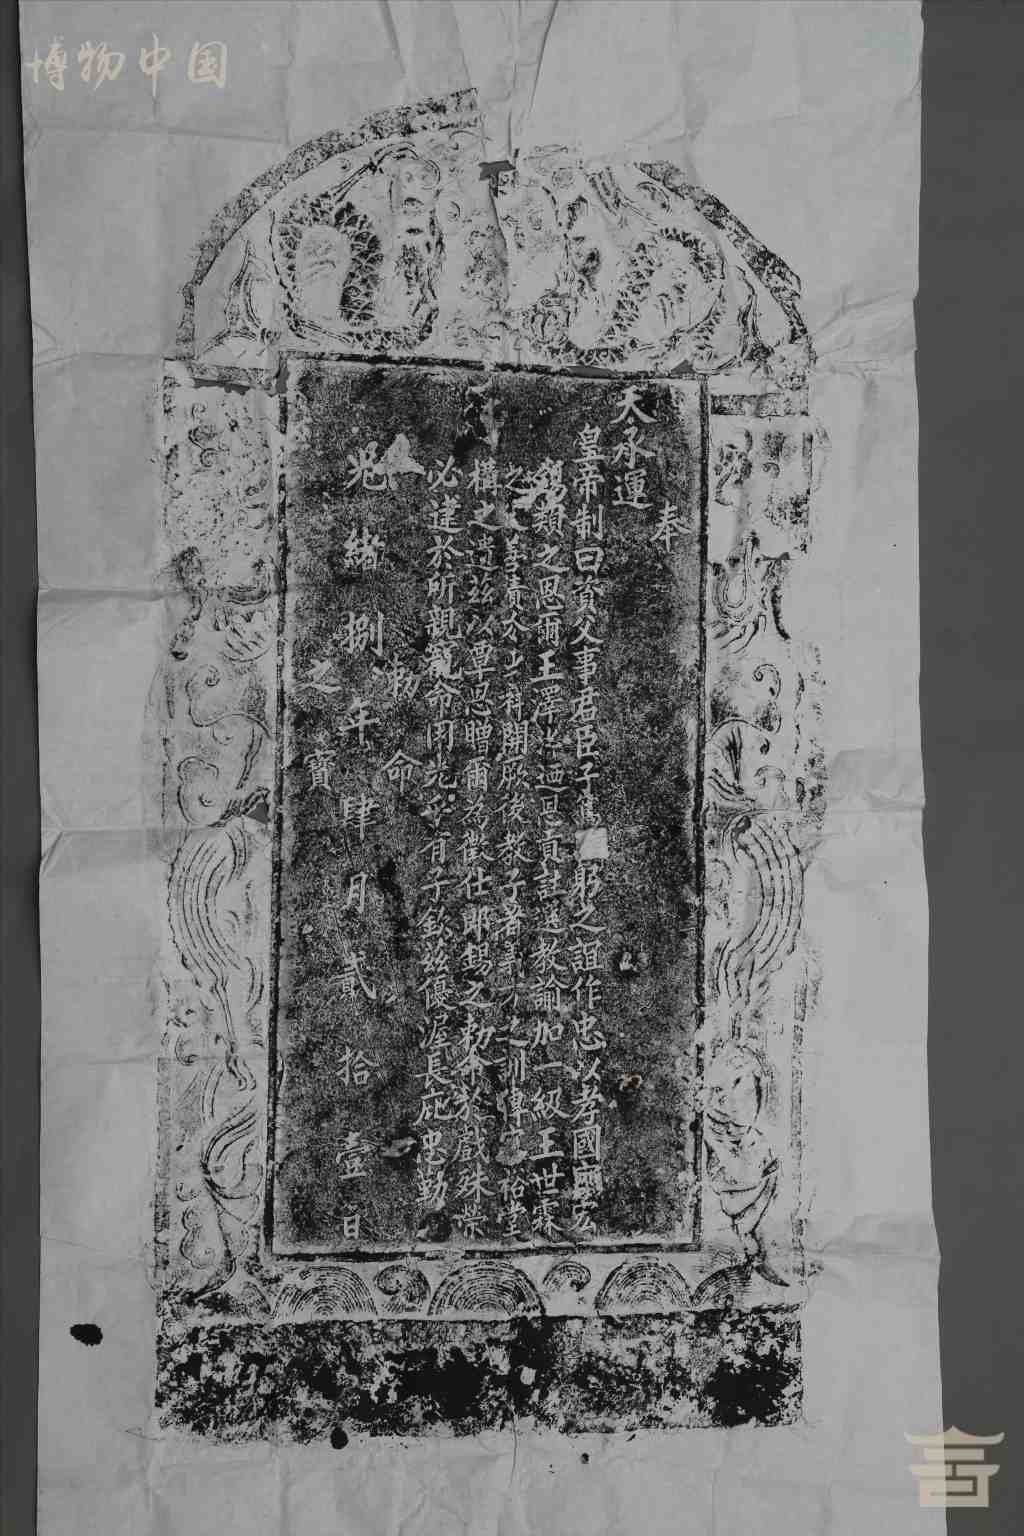 博物中国
奉
天承運
皇帝制曰資父事君臣子篤躬之誼作忠以孝國家宏
錫類之恩爾王澤迺貢註選教諭加一級王世霖
之父善積於身祥開厥後教子著義方之訓傳家裕堂
構之遺茲以覃恩贈爾為徵仕郎錫之勅命於戲殊榮
必逮於所親寵命用光乎有子欽茲優渥長庇忠勤
勅命
光緒捌年肆月貳拾壹日
之寶